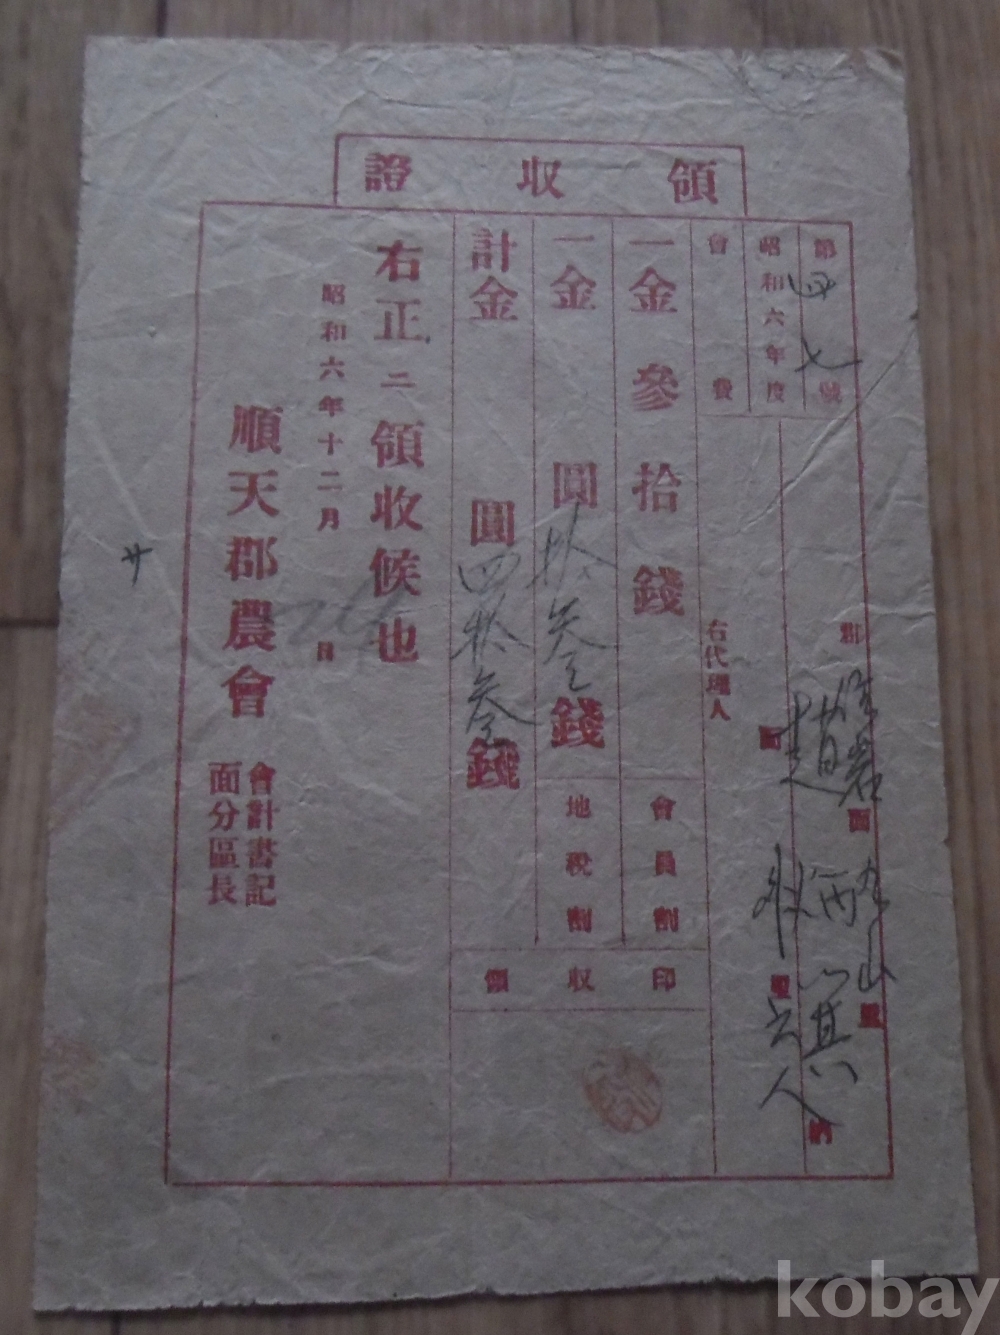 領收證
第四七號
昭和六年度
會費
郡 面 九山里
面 里 納人
右代理人
一金參拾錢 會員割
一金 圓拾參錢 地稅割
計金 圓四拾參錢
領收印
右正ニ領收候也
昭和六年十二月 日
順天郡農會 會計書記
面分區長
kobay